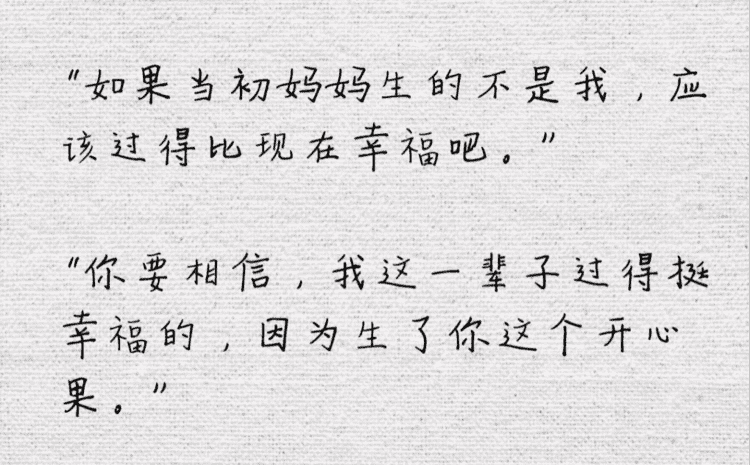 "如果当初妈妈生的不是我，应
该过得比现在幸福吧。"
"你要相信，我这一辈子过得挺
幸福的，因为生了你这个开心
果。"